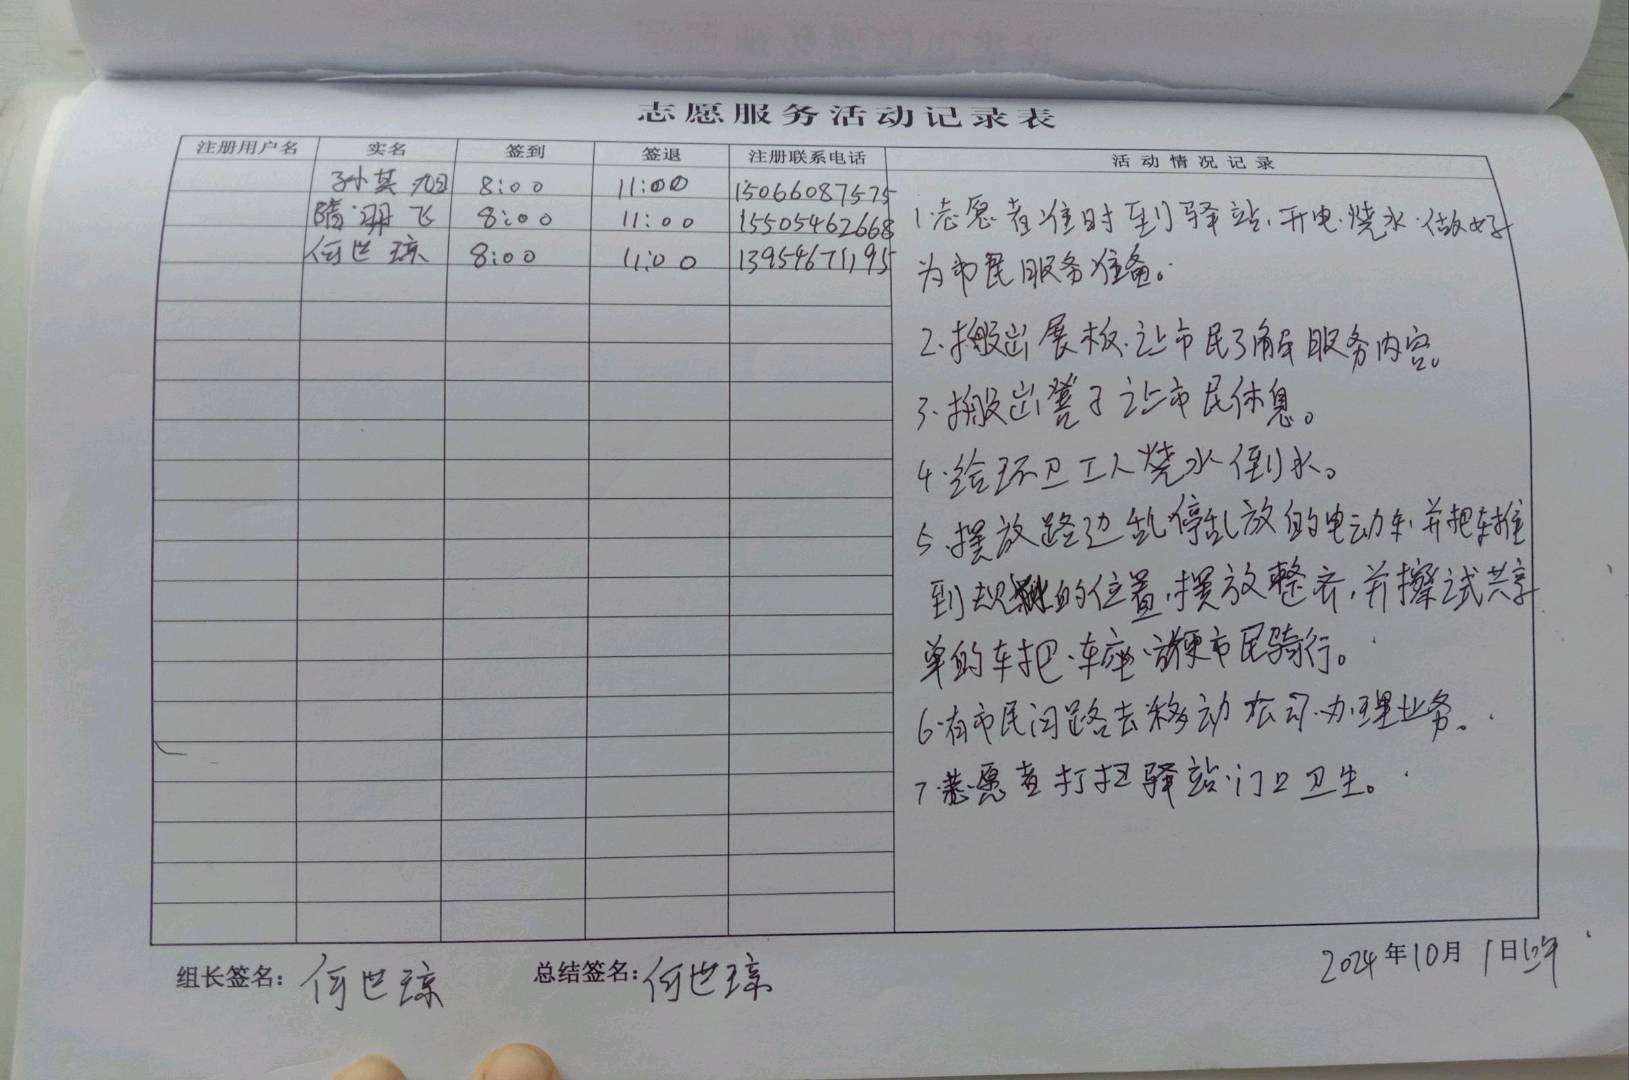 志愿服务活动记录表
注册用户名 实名 签到 签退 注册联系电话 活动情况记录
孙其旭 8:00 11:00 15066087575
隋翔飞 8:00 11:00 15505462668
何世琼 8:00 11:00 13954671195
1.志愿者准时到驿站.开电.烧水.做好
为市民服务准备。
2.搬出展板.让市民了解服务内容。
3.搬出凳子让市民休息。
4.给环卫工人烧水倒水。
5.摆放路边乱停乱放的电动车.并把车推
到规的位置,摆放整齐,并擦试共享
单的车把.车座.方便市民骑行。
6.有市民问路去移动公司.办理业务。
7.志愿者打扫驿站.门口卫生。
组长签名:何世琼 总结签名:何世琼 2024年10月1日